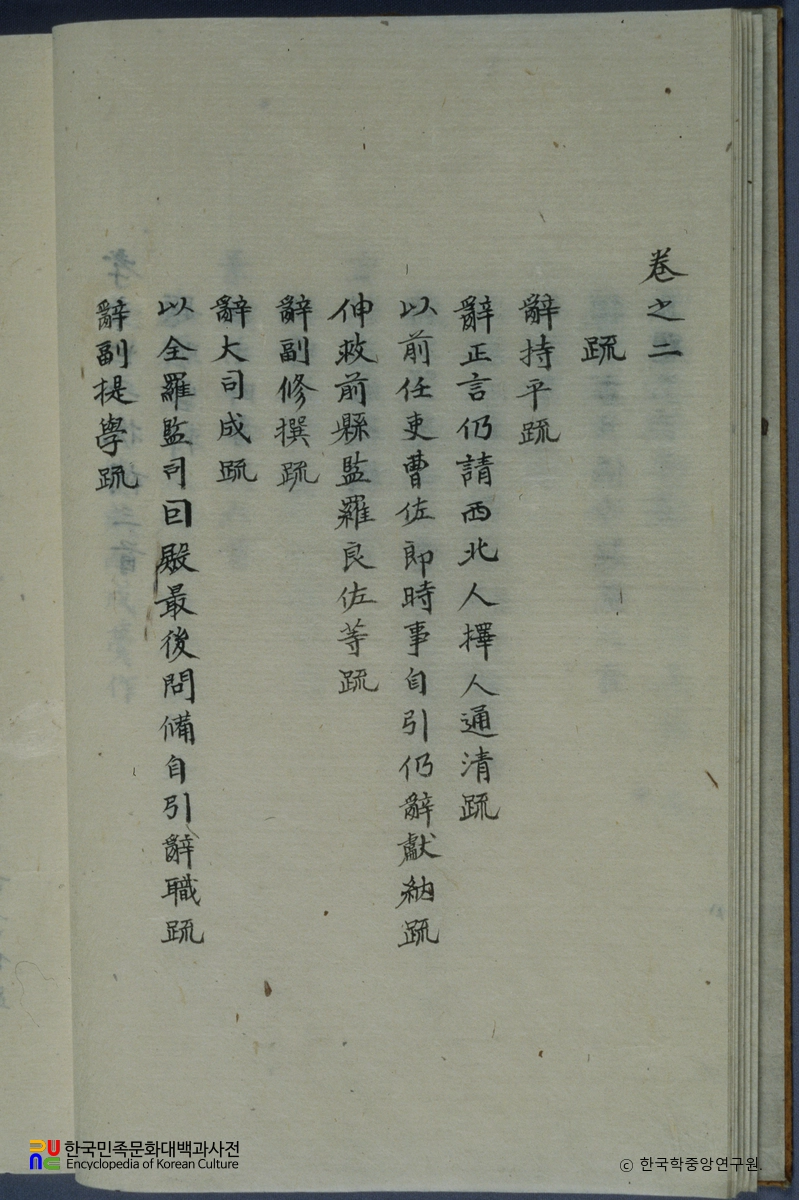 卷之二
疏
辭持平疏
辭正言仍請西北人擇人通清疏
以前任吏曹佐郎時事自引仍辭獻納疏
伸救前縣監羅良佐等疏
辭副修撰疏
辭大司成疏
以全羅監司回殿最後問備自引辭職疏
辭副提學疏
한국민족문화대백과사전
Encyclopedia of Korean Culture
© 한국학중앙연구원.